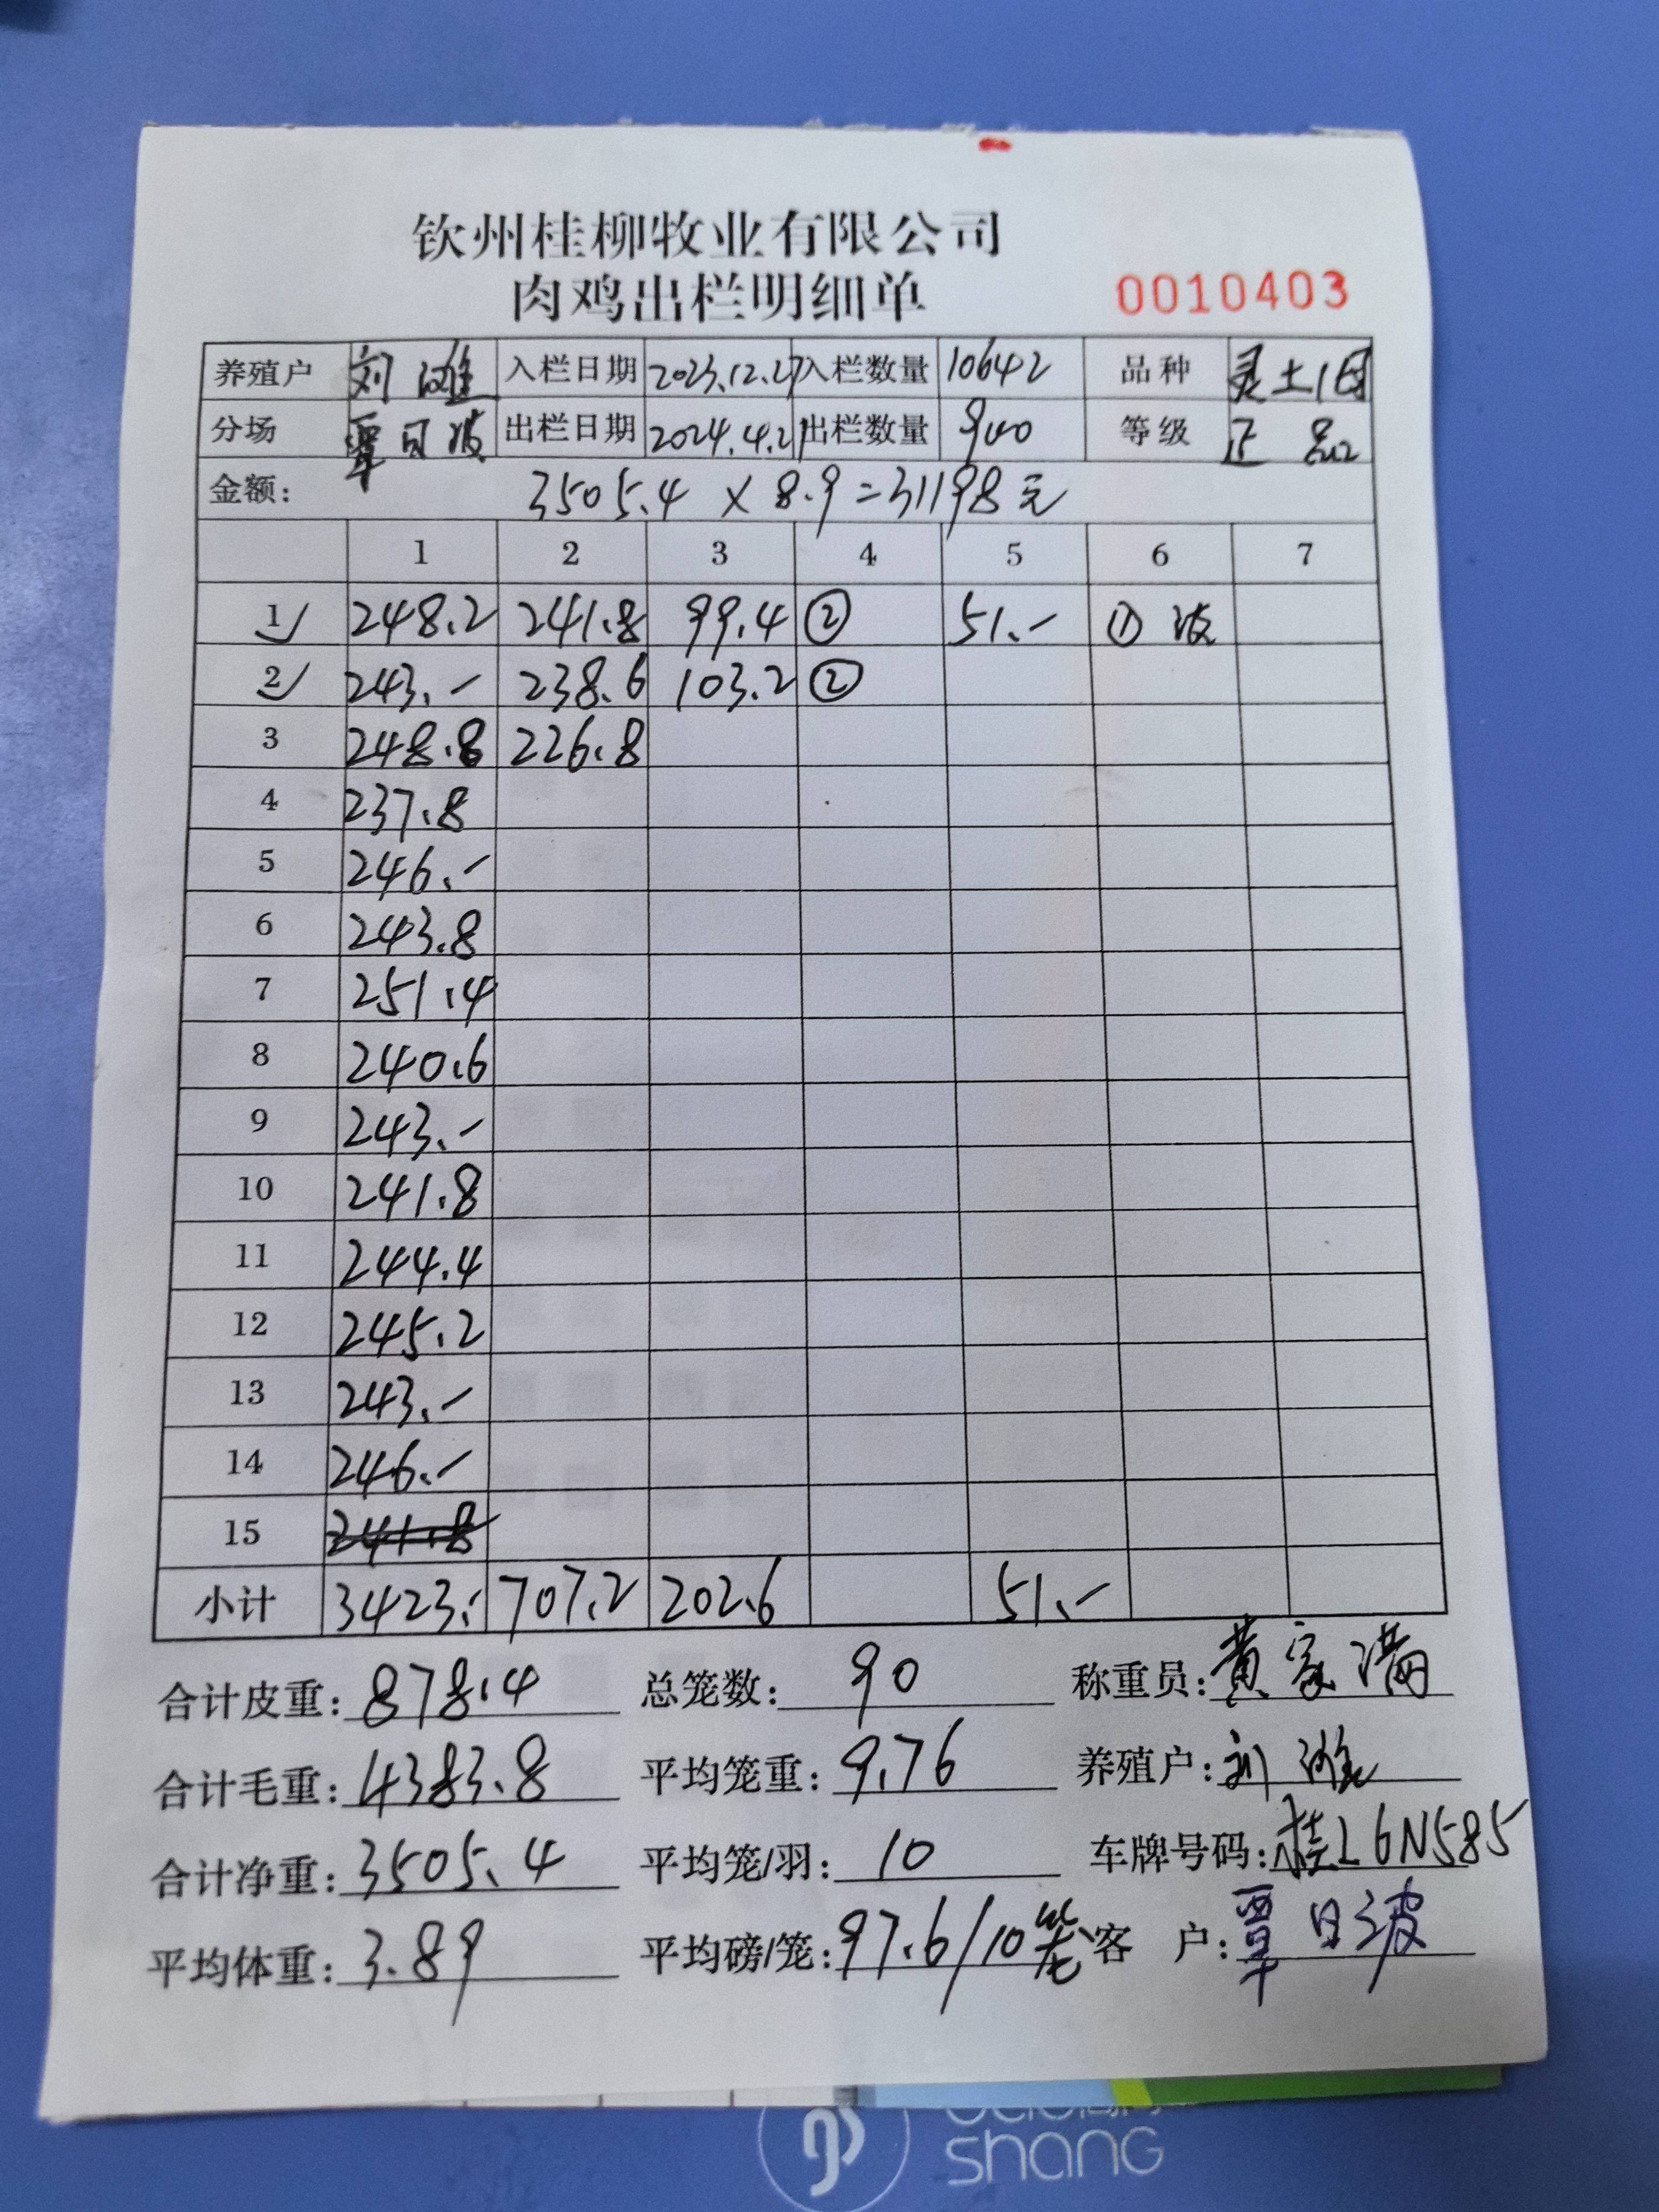 钦州桂柳牧业有限公司
肉鸡出栏明细单 0010403
养殖户 刘 入栏日期 2023.12.27 入栏数量 10642 品种 灵土1闺
分场 覃日波 出栏日期 2024.4.21 出栏数量 900 等级 正品
金额: 3505.4 × 8.9 = 31198元
1 2 3 4 5 6 7
1 248.2 241.8 99.4 ② 51.- ① 波
2 243.- 238.6 103.2 ②
3 248.8 226.8
4 237.8
5 246.-
6 243.8
7 251.4
8 240.6
9 243.-
10 241.8
11 244.4
12 245.2
13 243.-
14 246.-
15 241.8
小计 3423.- 707.2 202.6 51.-
合计皮重: 878.4 总笼数: 90 称重员: 黄家满
合计毛重: 4383.8 平均笼重: 9.76 养殖户: 刘
合计净重: 3505.4 平均笼/羽: 10 车牌号码: 桂L6N585
平均体重: 3.89 平均磅/笼: 97.6/10笼 客 户: 覃日波
shang